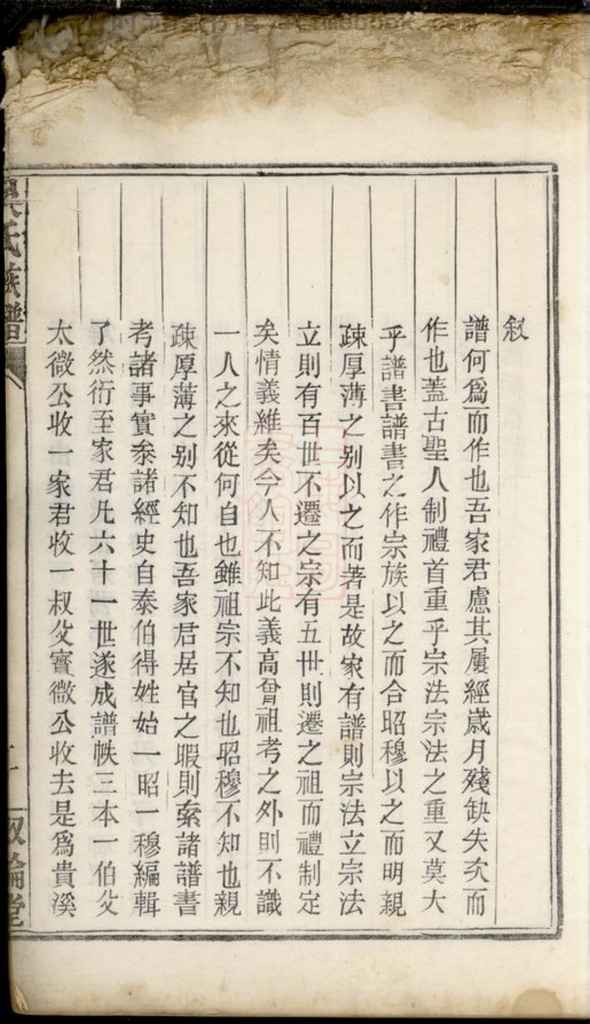 敘
譜何爲而作也吾家君慮其屢經歲月殘缺失次而
作也蓋古聖人制禮首重乎宗法宗法之重又莫大
乎譜書譜書之作宗族以之而合昭穆以之而明親
疎厚薄之别以之而著是故家有譜則宗法立宗法
立則有百世不遷之宗有五世則遷之祖而禮制定
矣情義維矣今人不知此義高曾祖考之外則不識
一人之來從何自也雖祖宗不知也昭穆不知也親
疎厚薄之别不知也吾家君居官之暇則索諸譜書
考諸事實叅諸經史自泰伯得姓始一昭一穆編輯
了然衍至家君凡六十一世遂成譜帙三本一伯父
太微公收一家君收一叔父賓微公收去是爲貴溪
氏族譜
敘倫堂